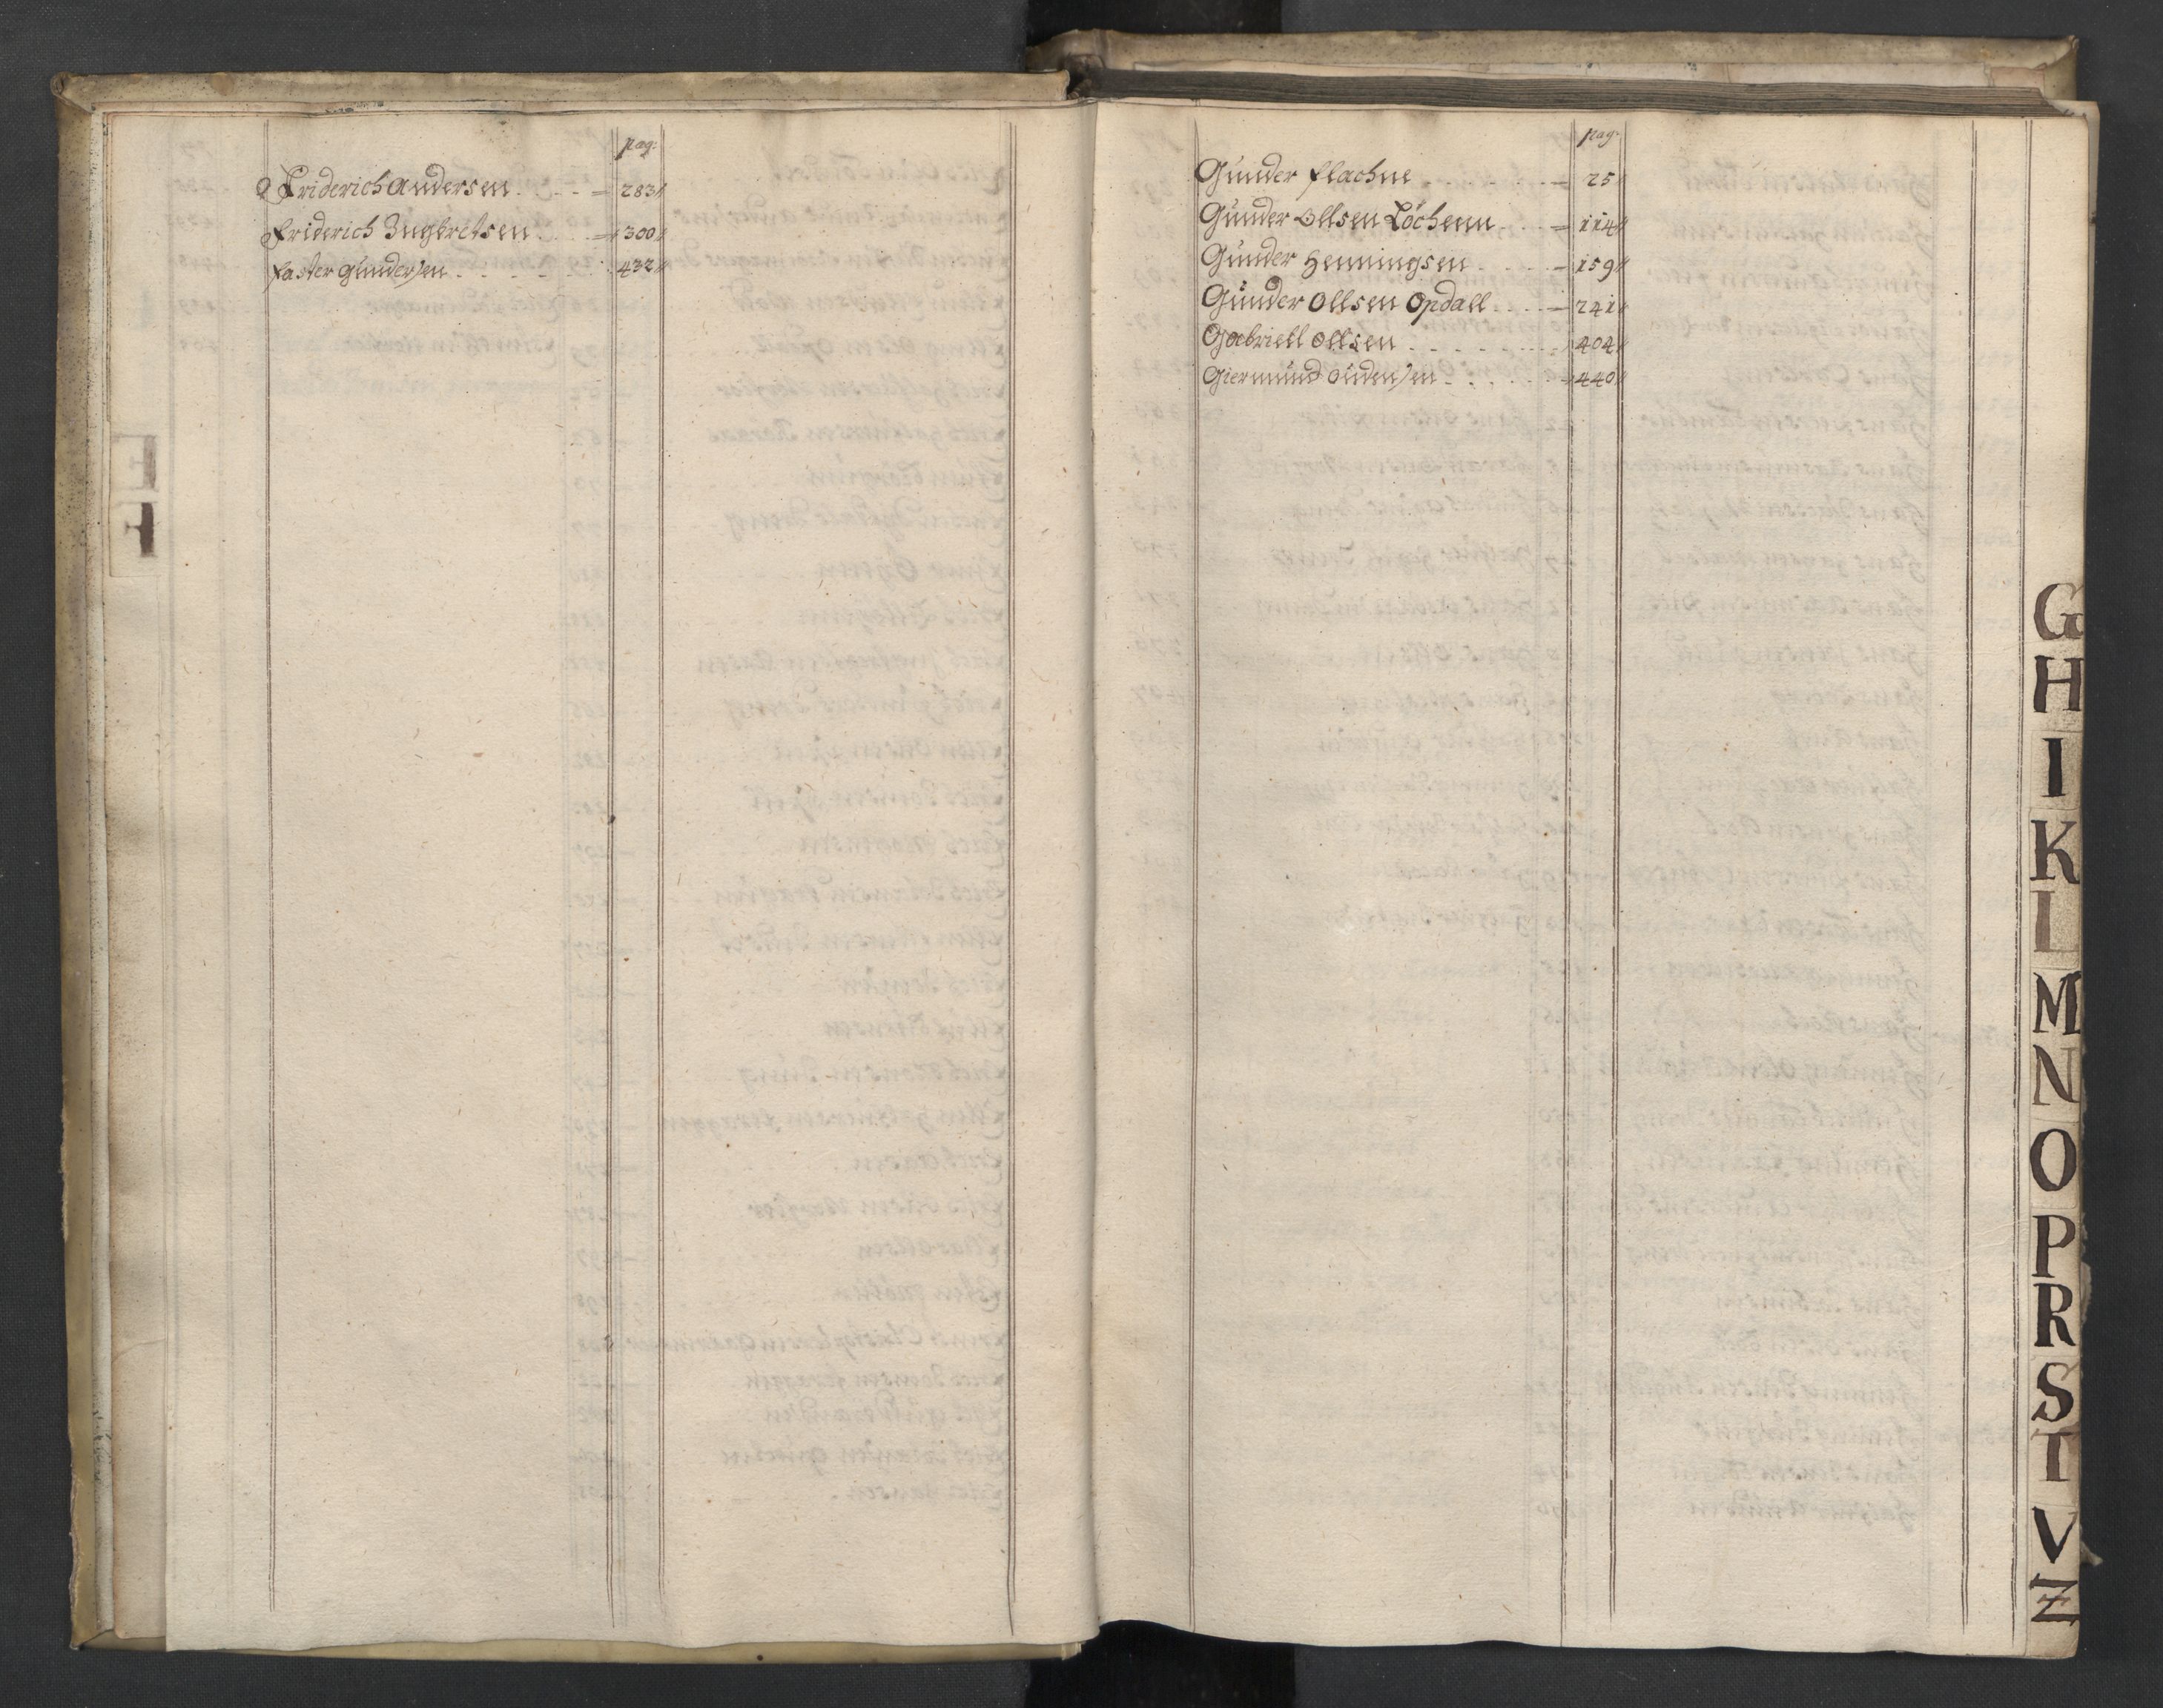 pag:
Friderich Andersen . . . = 283
Friderich Ingbretsen . . . = 300
Faster Gundersen . . . . . . : 432
E
F
pag:
Gúnder Flachne . . . . = 25
Gúnder Ollsen Löchenn . . = 114
Gúnder Henningsen . . . . = 159
Gúnder Ollsen Opdall . . . = 241
Gabriell Ollsen . . . . . . . 404
Giermúnd Oúdensen . . . . . = 440
G
H
I
K
L
M
N
O
P
R
S
T
V
Z